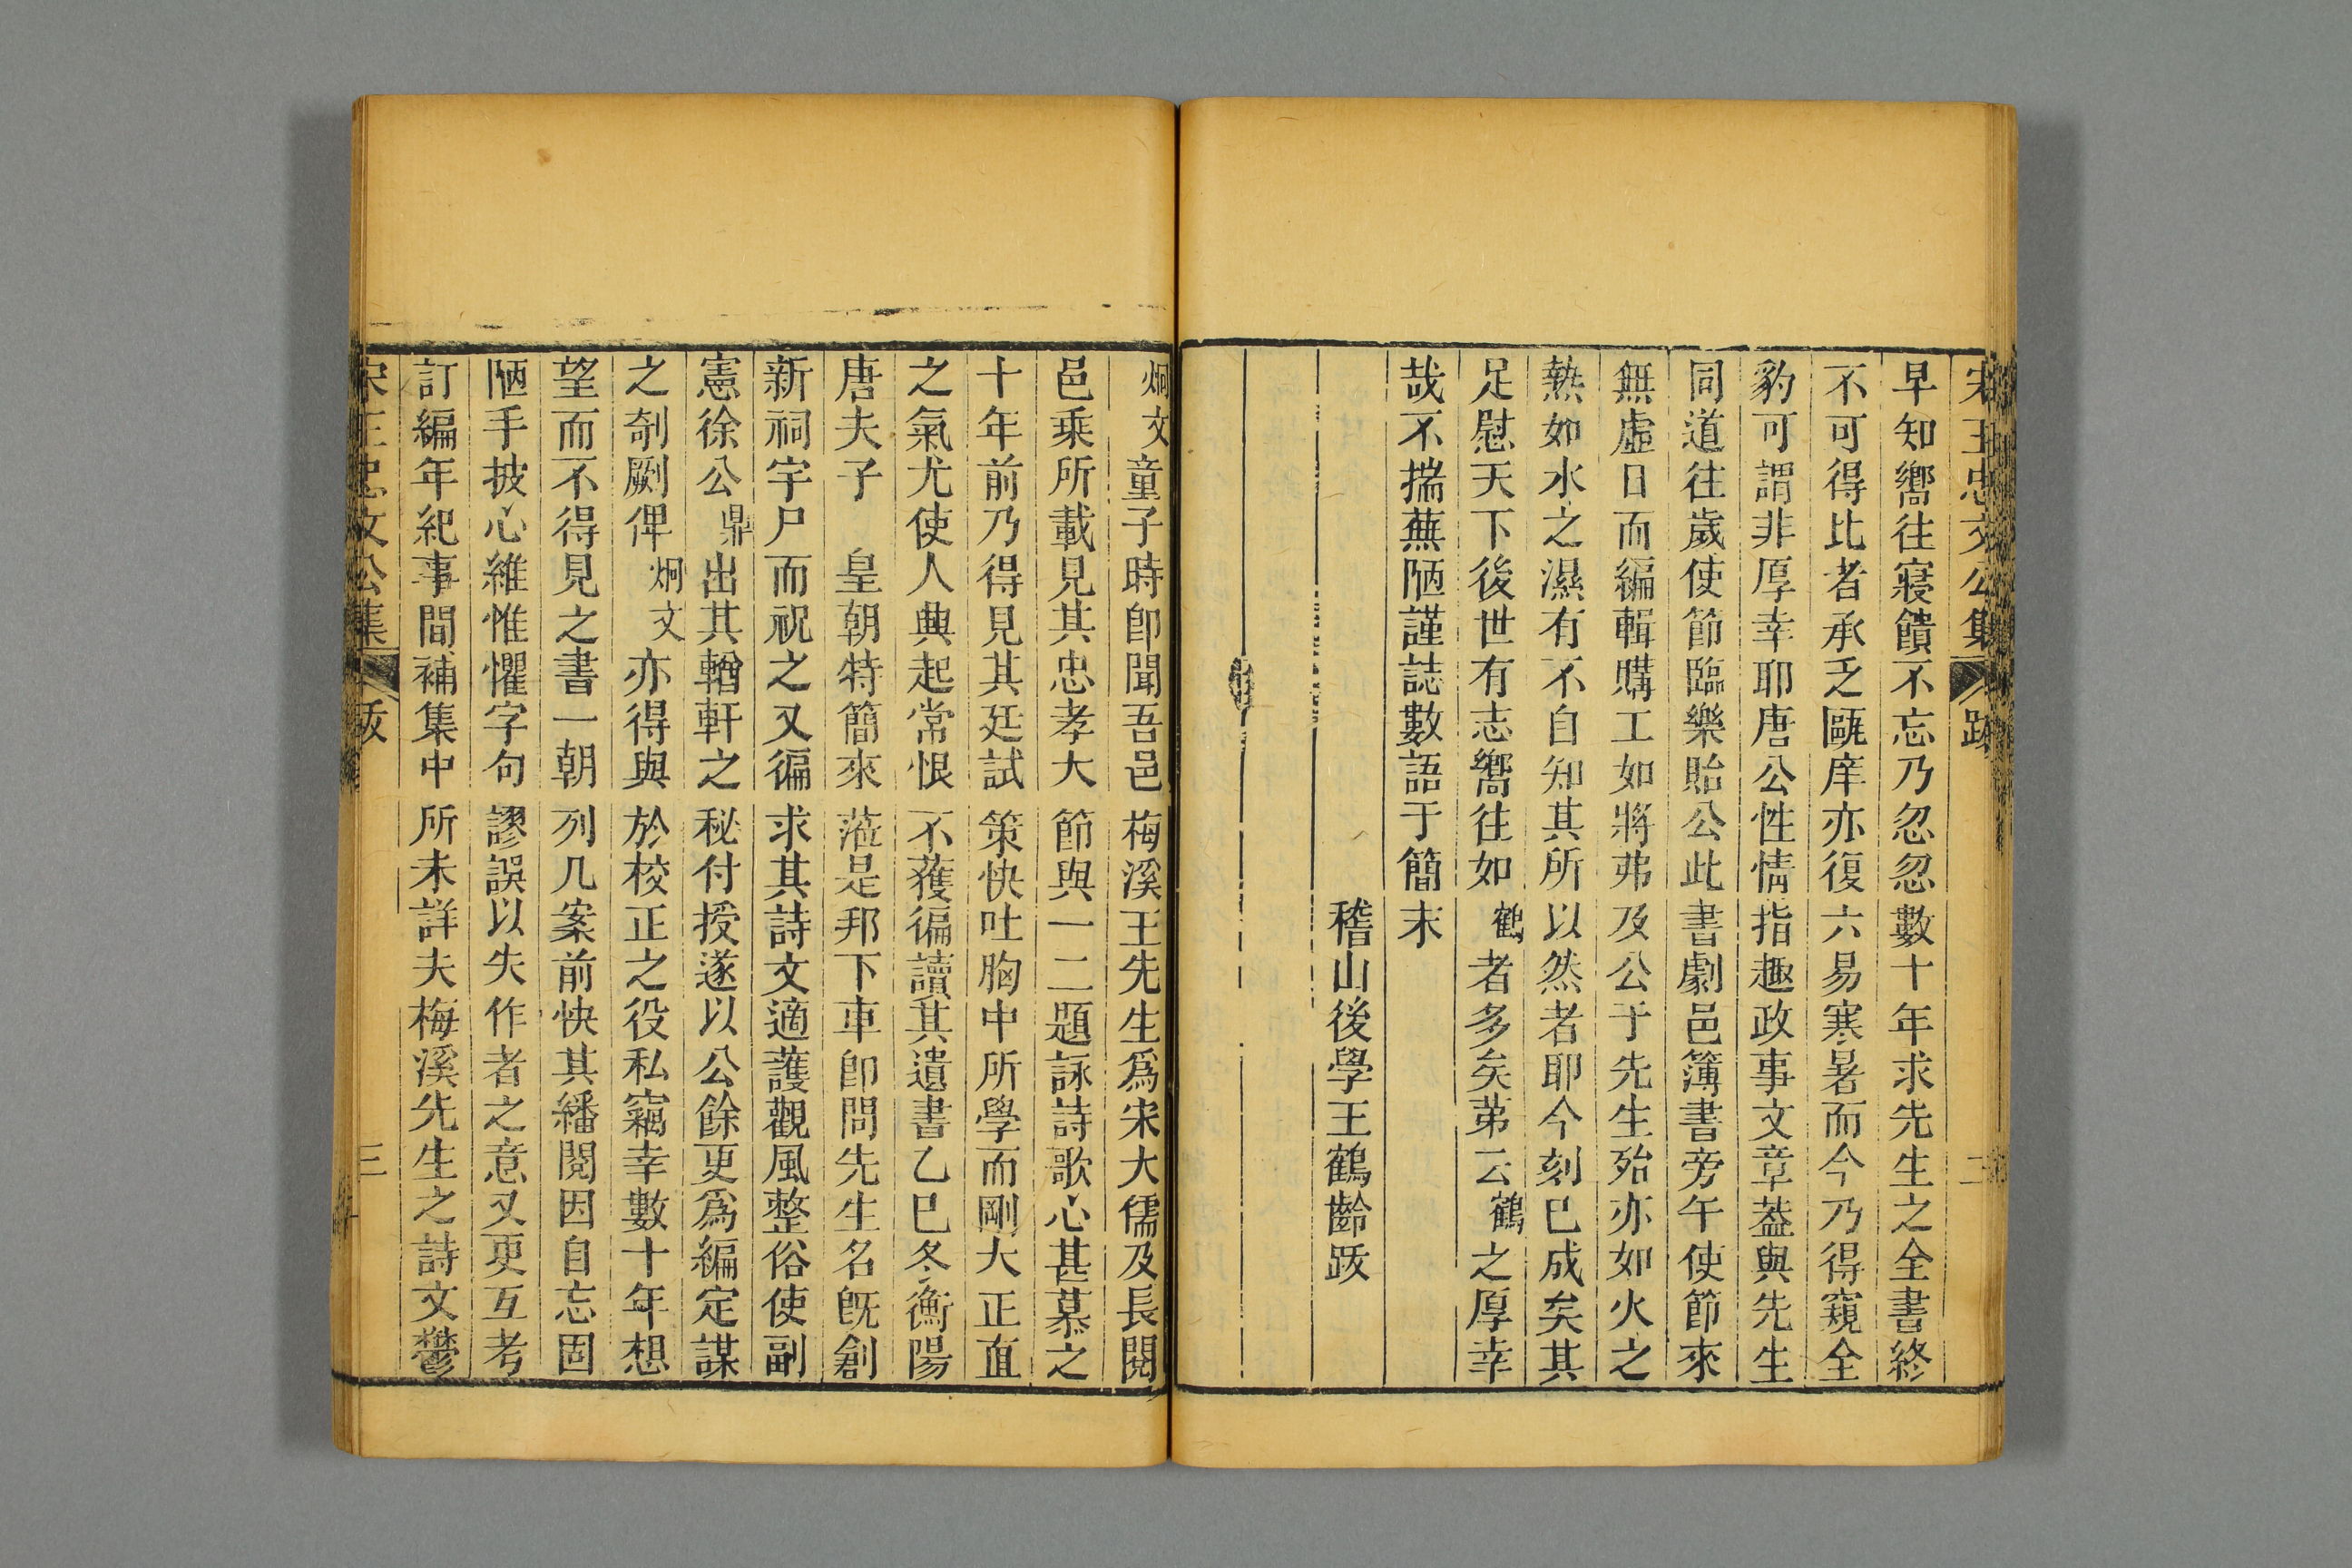 宋王忠文公集 跋 二
早知嚮往寢饋不忘乃忽忽數十年求先生之全書終
不可得比者承乏甌庠亦復六易寒暑而今乃得窺全
豹可謂非厚幸耶唐公性情指趣政事文章葢與先生
同道往歲使節臨樂貽公此書劇邑簿書旁午使節來
無虛日而編輯購工如將弗及公于先生殆亦如火之
熱如水之濕有不自知其所以然者耶今刻已成矣其
足慰天下後世有志嚮往如鶴者多矣苐云鶴之厚幸
哉不揣蕪陋謹誌數語于簡末
稽山後學王鶴齡跋
炯文童子時卽聞吾邑梅溪王先生爲宋大儒及長閱
邑乘所載見其忠孝大節與一二題詠詩歌心甚慕之
十年前乃得見其廷試策快吐胸中所學而剛大正直
之氣尤使人興起常恨不獲徧讀其遺書乙巳冬衡陽
唐夫子 皇朝特簡來蒞是邦下車卽問先生名旣創
新祠宇尸而祝之又徧求其詩文適護觀風整俗使副
憲徐公鼎出其輶軒之秘付授遂以公餘更爲編定謀
之剞劂俾炯文亦得與於校正之役私竊幸數十年想
望而不得見之書一朝列几案前快其繙閱因自忘固
陋手披心維惟懼字句謬誤以失作者之意又更互考
訂編年紀事間補集中所未詳夫梅溪先生之詩文鬱
宋王忠文公集 跋 三